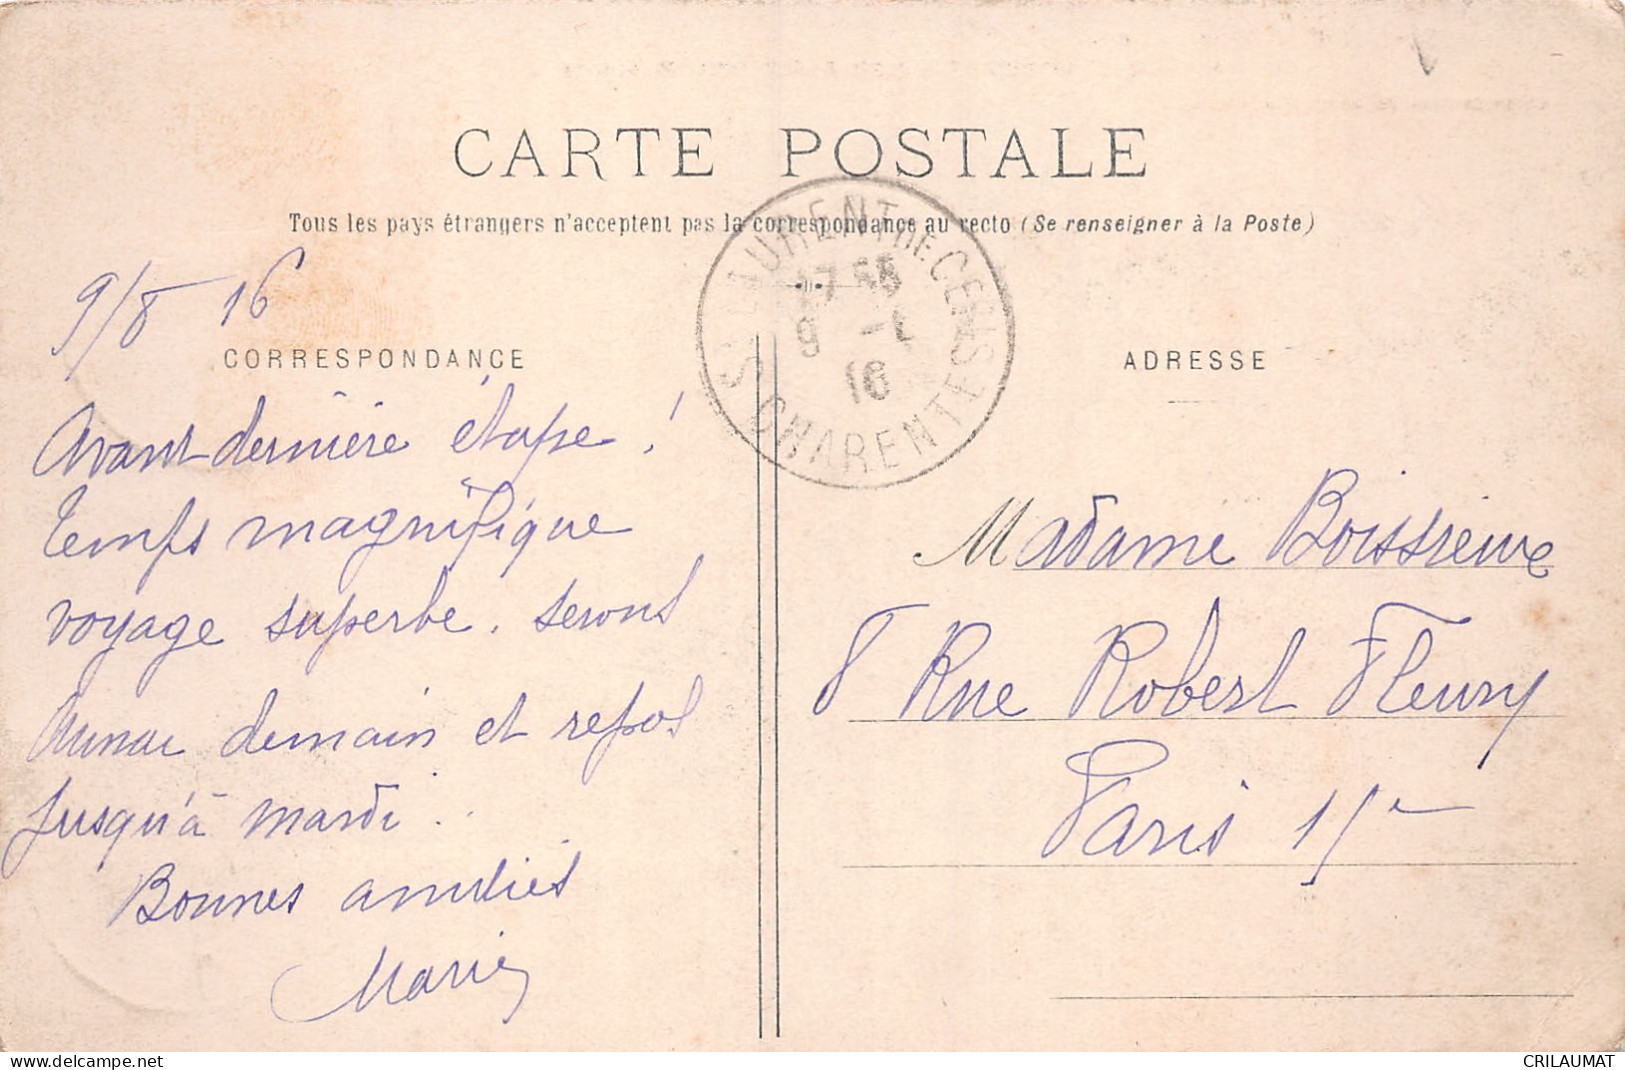 CARTE POSTALE
Tous les pays étrangers n'acceptent pas la correspondance au recto (Se renseigner à la Poste)
ST LAURENT DE CERIS
17 55
9 -8
16
CHARENTE
9/8 16
CORRESPONDANCE
Avant-dernière étape !
temps magnifique
voyage superbe. serons
demain et repos
jusqu'à mardi..
Bonnes amitiés
Marie
ADRESSE
Madame
8 Rue Robert Fleury
Paris 15e
www.delcampe.net
CRILAUMAT